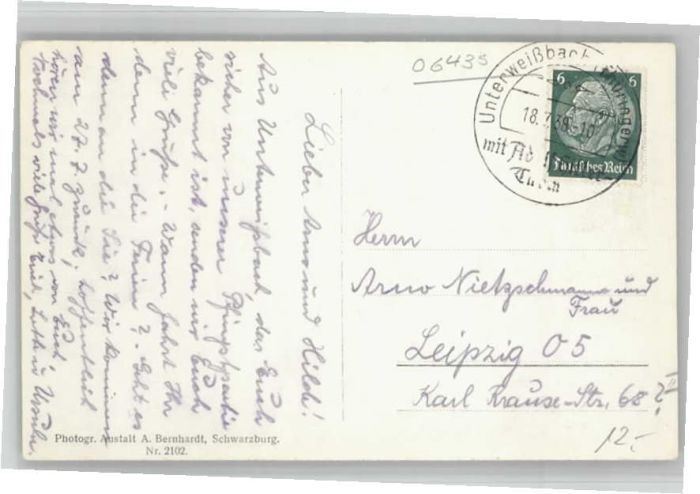 06435
Unterweißbach (Thüringerw
18.7.38-10
mit Ad
6 6
Deutsches Reich
Lieber Arno und Hilde!
Aus Unterweißbach, das Euch
sicher von unserer Pfingstpartie
bekannt ist, senden wir Euch
viele Grüße. - Wann fahrt Ihr
denn in die Ferien? - Geht es
denn an die See? Wir kommen
am 27.7. zurück; hoffentlich
hören wir mal etwas von Euch
Nochmals viele Grüße
Herrn
Arno Nietzschmann und
Frau
Leipzig O5
Karl Krause-Str. 68 II
?
12.-
Photogr. Anstalt A. Bernhardt, Schwarzburg.
Nr. 2102.